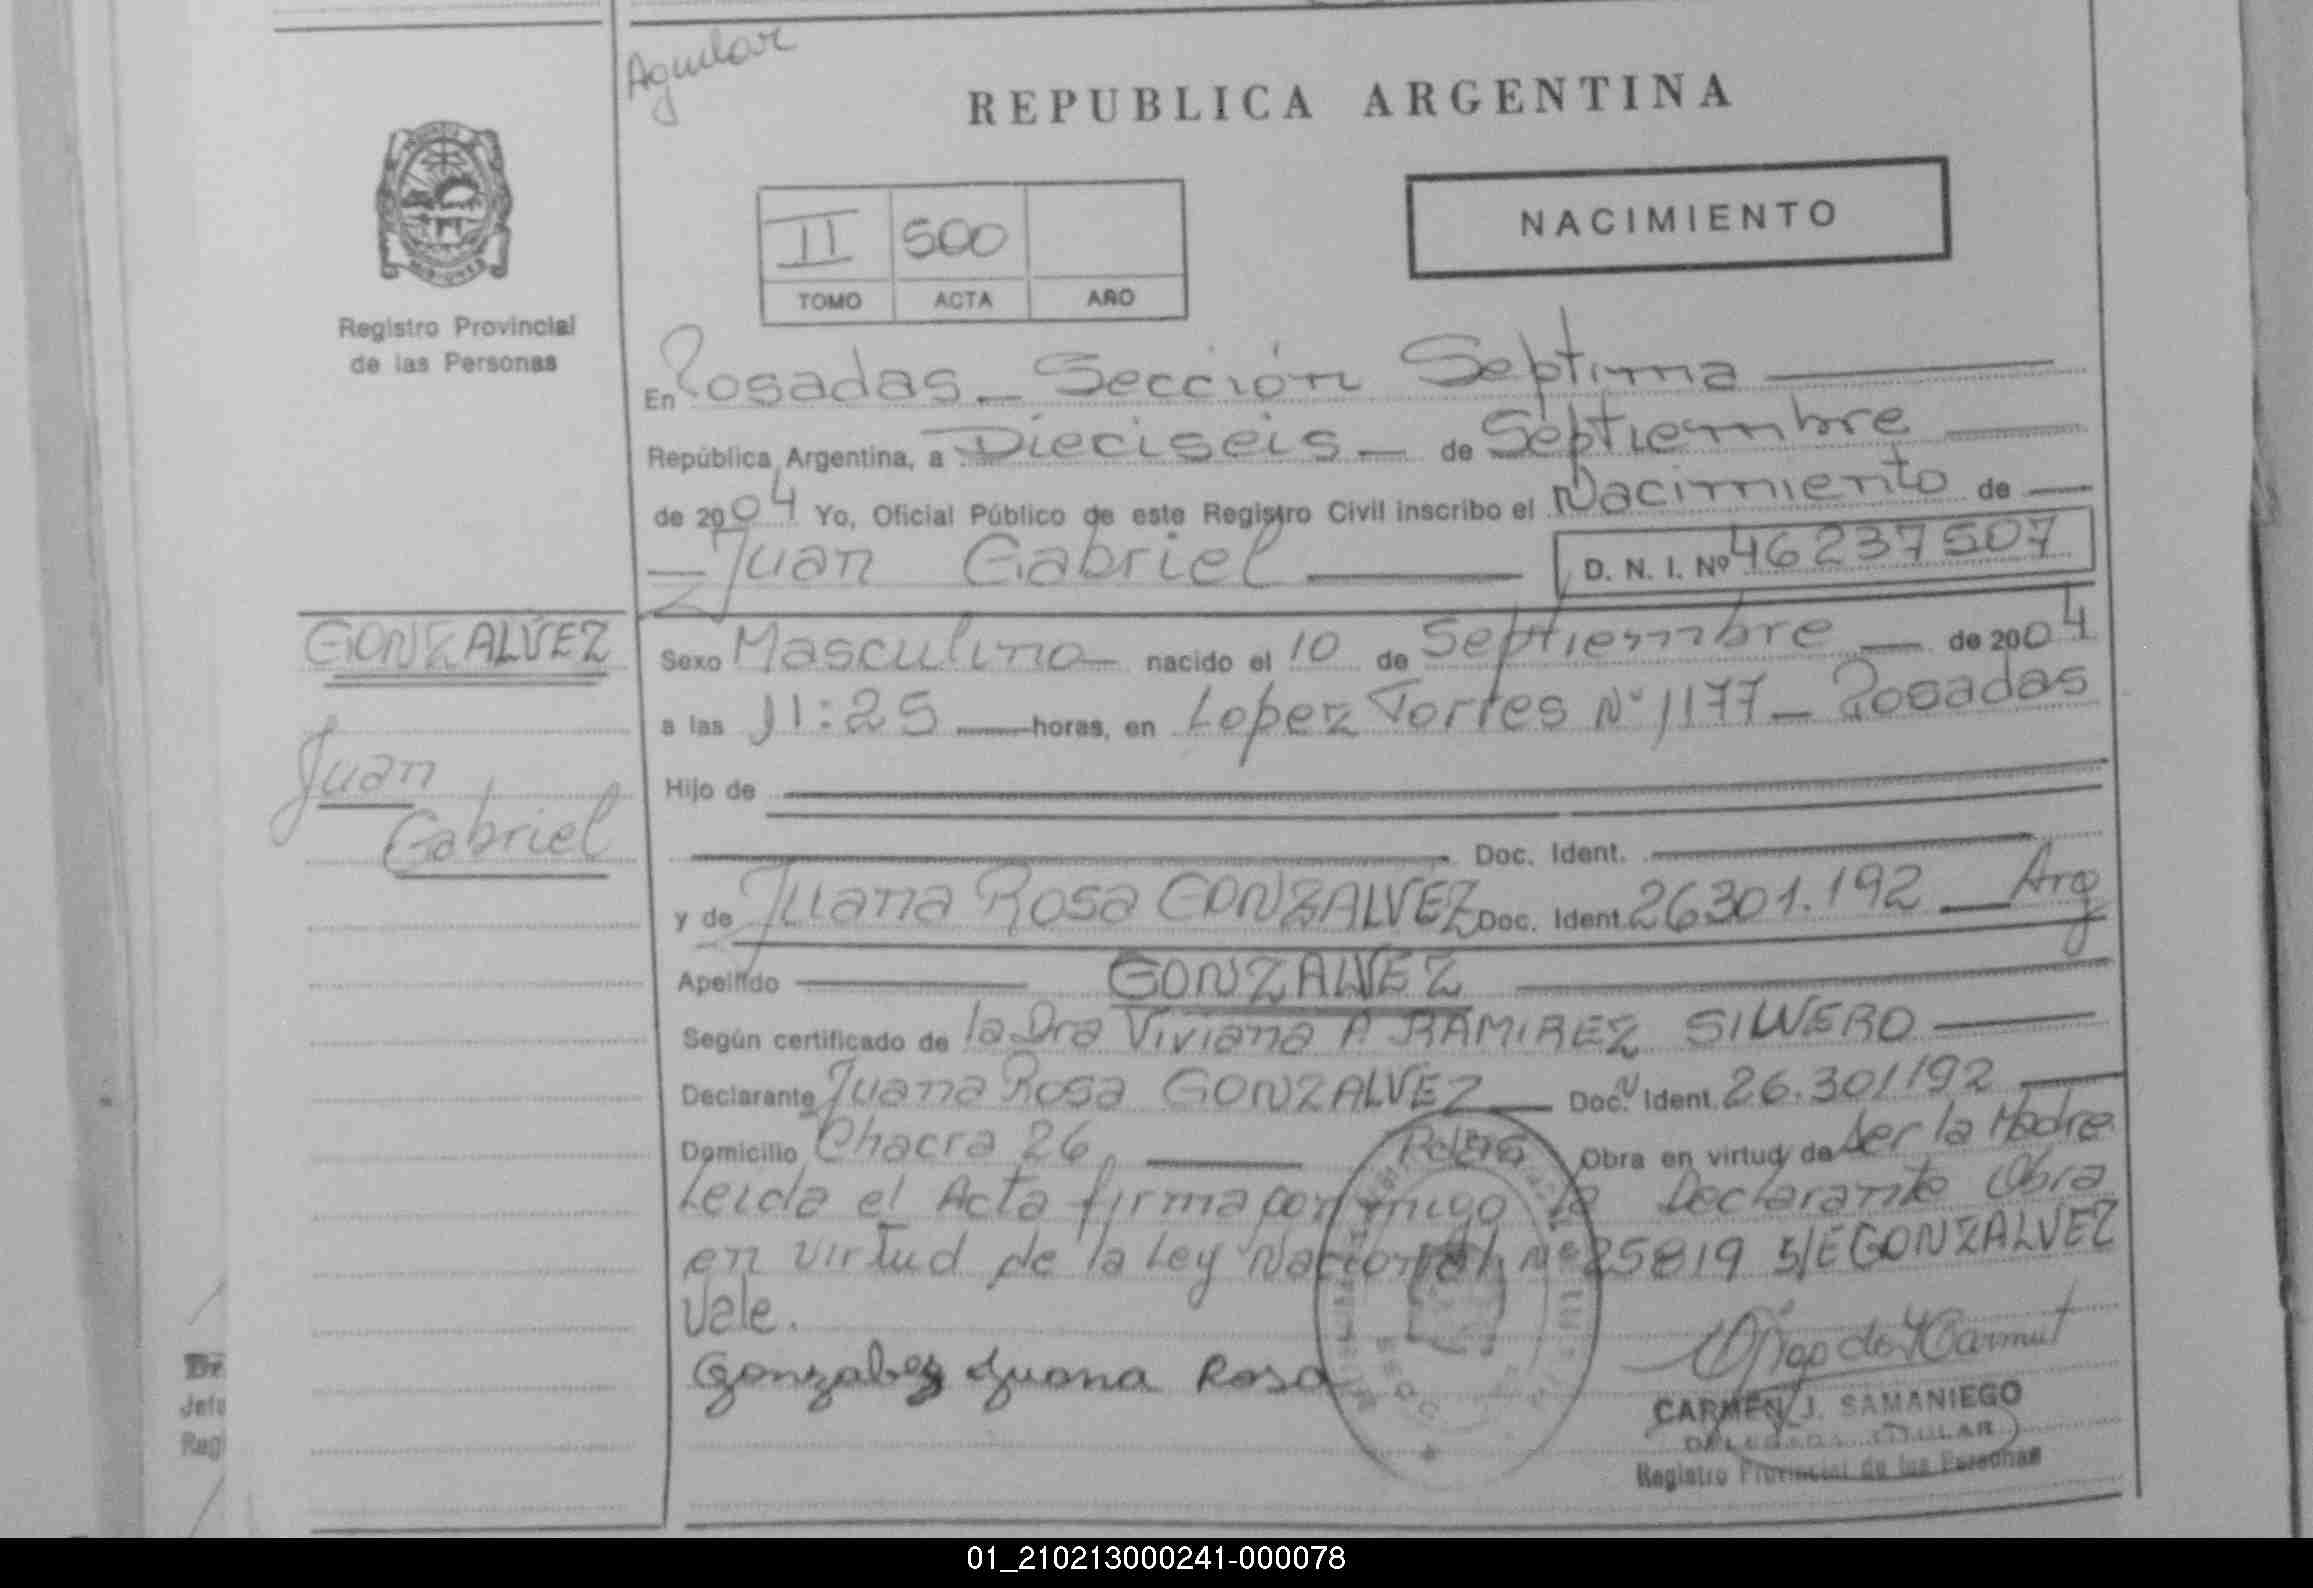 Aguilar
REPUBLICA ARGENTINA
NACIMIENTO
II 500
TOMO ACTA AÑO
Registro Provincial
de las Personas
En Posadas - Sección Septima
República Argentina, a Dieciseis - de Septiembre
de 2004 Yo, Oficial Público de este Registro Civil inscribo el Nacimiento de
Juan Gabriel D. N. I. Nº 46237507
GONZALVEZ
Juan
Gabriel
Sexo Masculino nacido el 10 de Septiembre de 2004
a las 11:25 horas, en Lopez Torres Nº 1177 - Posadas
Hijo de
Doc. Ident.
y de Juana Rosa GONZALVEZ Doc. Ident. 26301.192 Arg
Apellido GONZALVEZ
Según certificado de la Dra Viviana A RAMIREZ SILVERO
Declarante Juana Rosa GONZALVEZ Doc. Ident. 26.301192
Domicilio Chacra 26 Obra en virtud de Ser la Madre
Leida el Acta firma por migo la Declarante Obra
en virtud de la Ley Nacional Nº 25819 S/E GONZALVEZ
Vale.
Gonzalbez Juana Rosa
CARMEN J. SAMANIEGO
DELEGADA TITULAR
Registro Provincial de las Personas
01_210213000241-000078